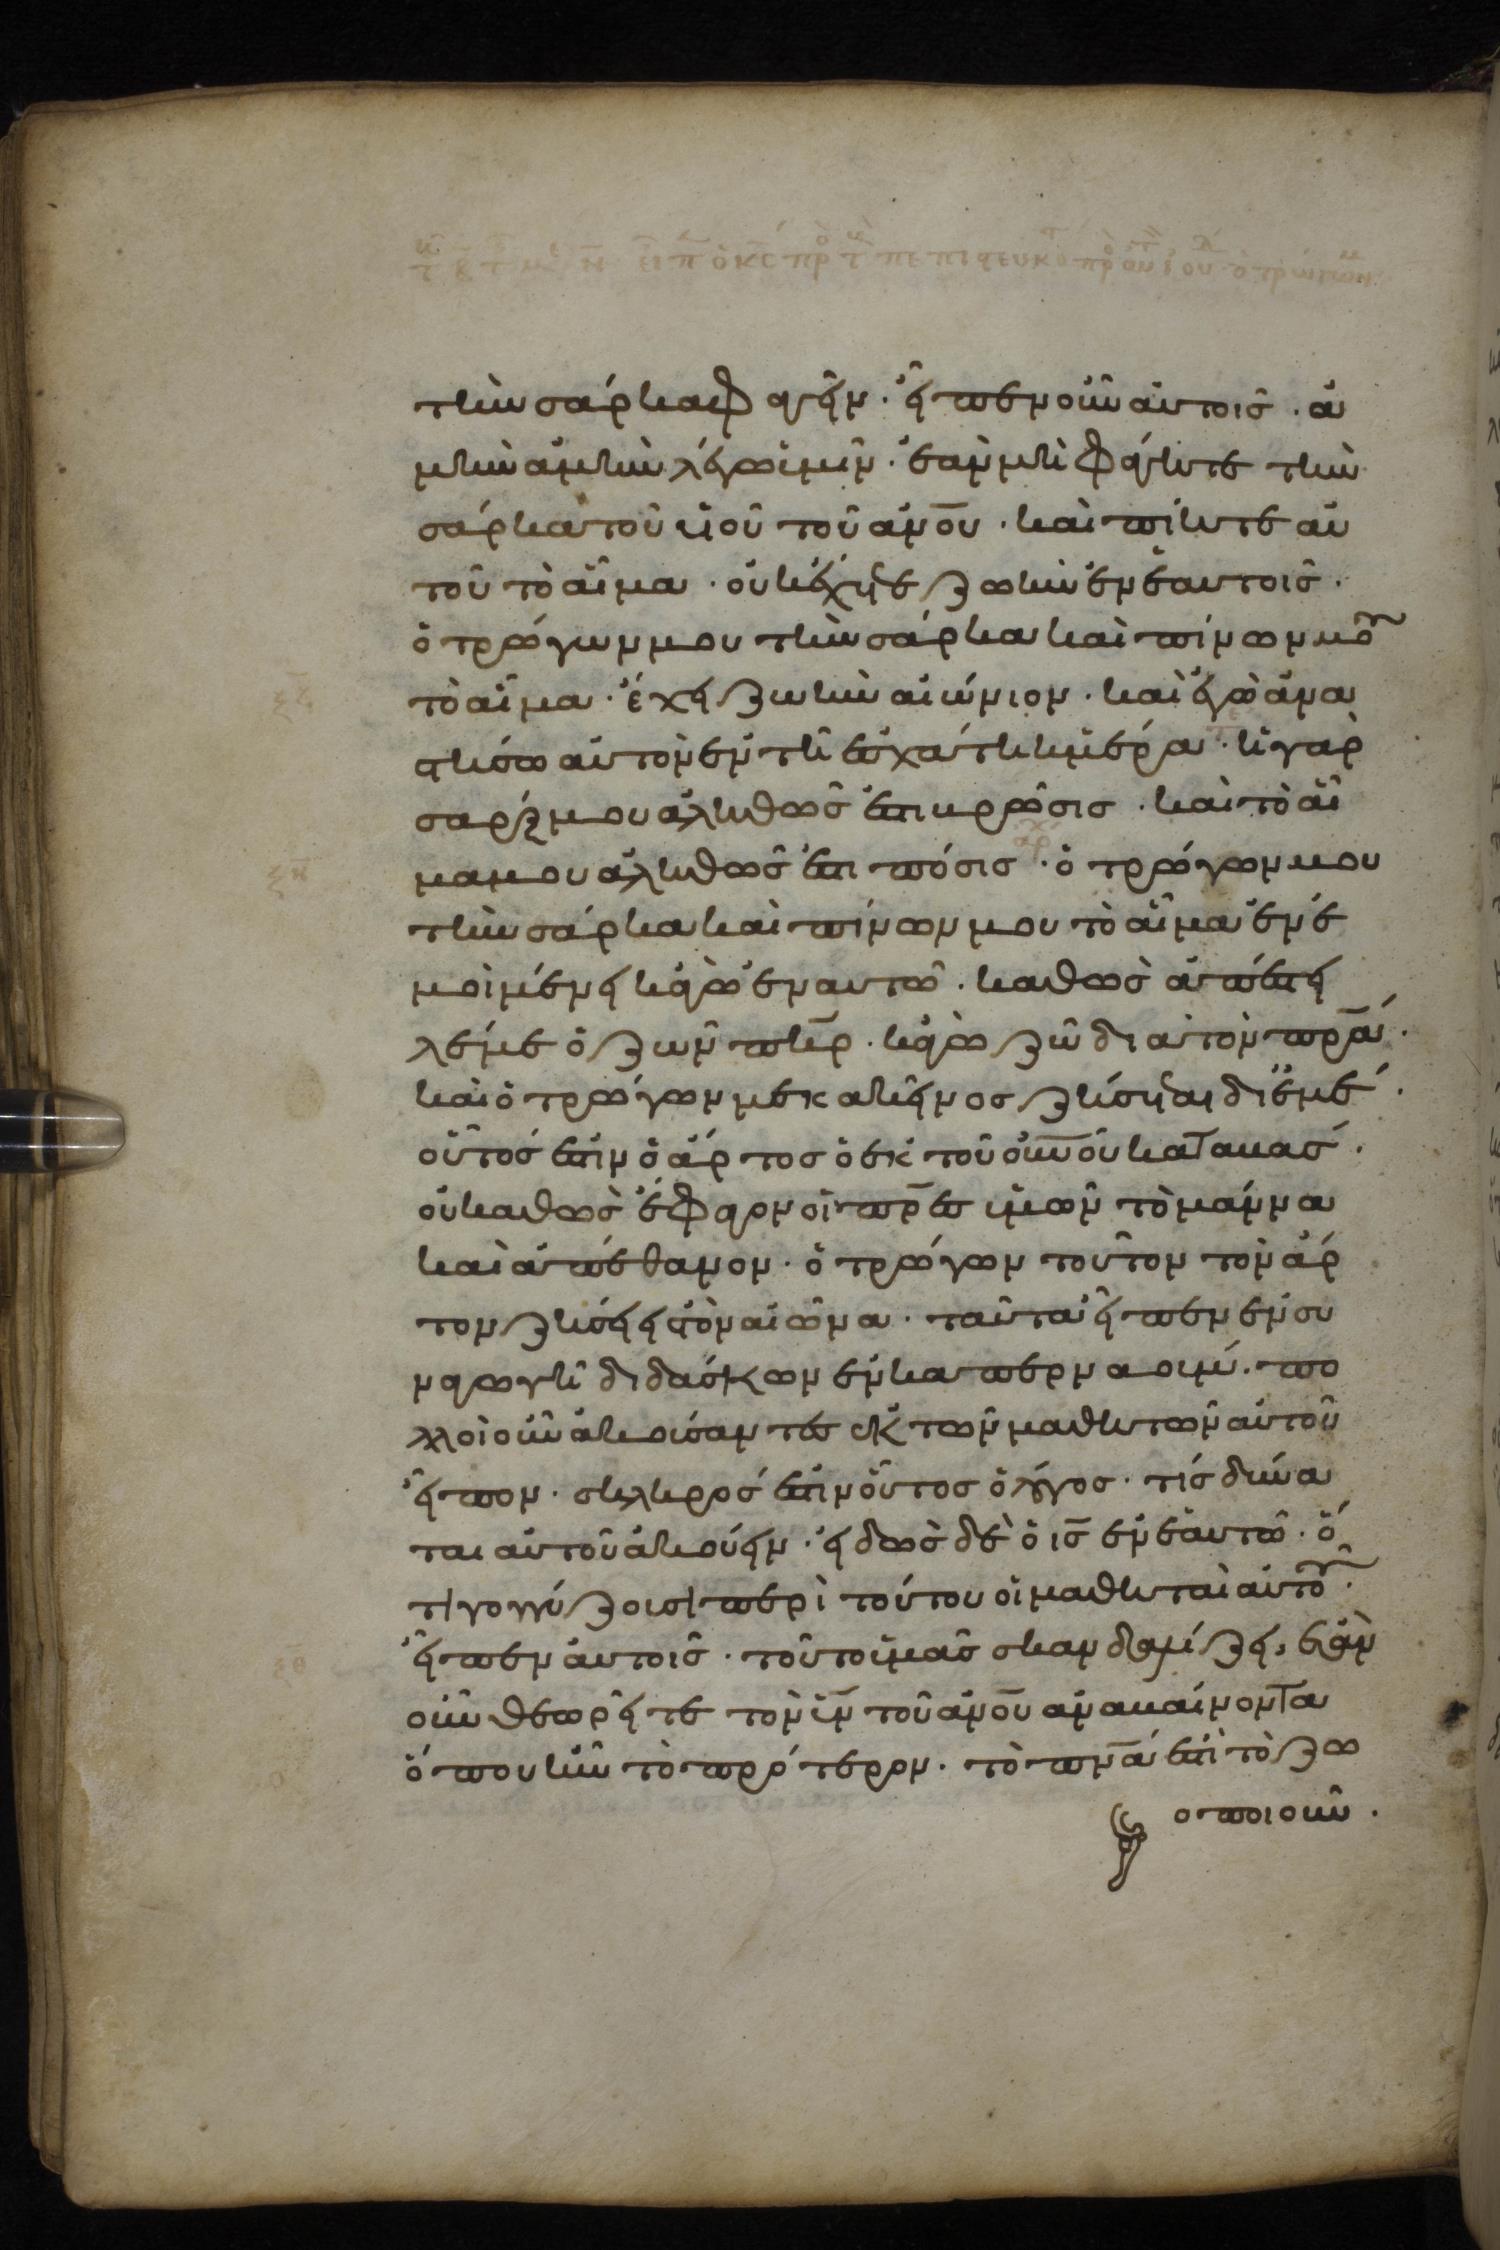 εἶπεν ὁ κς πρὸς τοὺς πεπιστευκότ πρὸς αὐτὸν ἰουδ ὁ τρώγων
τὴν σάρκα φαγεῖν · εἶπεν οὖν αὐτοῖς · ἀ
μὴν ἀμὴν λέγω ὑμῖν · ἐὰν μὴ φάγητε τὴν
σάρκα τοῦ υἱοῦ τοῦ ἀνου · καὶ πίητε αὐ
τοῦ τὸ αἷμα · οὐκ ἔχητε ζωὴν ἐν ἑαυτοῖς ·
ὁ τρώγων μου τὴν σάρκα καὶ πίνων μου
τὸ αἷμα · ἔχει ζωὴν αἰώνιον · καὶ ἐγὼ ἀνα
στήσω αὐτὸν ἐν τῇ ἐσχάτη ἡμέρα · ἡ γὰρ
σάρξ μου ἀληθῶς ἐστι βρῶσις · καὶ τὸ αἷ
μα μου ἀληθῶς ἐστι πόσις · ὁ τρώγων μου
τὴν σάρκα καὶ πίνων μου τὸ αἷμα ἐν ἐ
μοὶ μένει κἀγὼ ἐν αὐτῶ · καθὼς ἀπέστει
λέν με ὁ ζων πηρ · κἀγὼ ζῶ διὰ τὸν πρα ·
καὶ ὁ τρώγων με κακεῖνος ζήσηται δι ἐμέ ·
οὗτός ἐστιν ὁ ἄρτος ὁ ἐκ τοῦ οὐνοῦ καταβάς ·
οὐ καθὼς ἔφαγον οἱ πρες ὑμῶν τὸ μάννα
καὶ ἀπέθανον · ὁ τρώγων τοῦτον τὸν ἄρ
τον ζήσει εἰς τὸν αἰῶνα · ταῦτα εἶπεν ἐν συ
ναγωγῆ διδάσκων ἐν καπερναούμ · πο
λλοὶ οὖν ἀκούσαντες ἐκ τῶν μαθητῶν αὐτοῦ
εἶπον · σκληρός ἐστιν οὗτος ὁ λόγος · τίς δύνα
ται αὐτοῦ ἀκούειν · εἰδὼς δὲ ὁ ις ἐν ἑαυτῶ · ὅ
τι γογγύζουσι περὶ τούτου οἱ μαθηταὶ αὐτοῦ ·
εἶπεν αὐτοῖς · τοῦτο ὑμᾶς σκανδαλίζει, ἐὰν
οὖν θεωρεῖτε τὸν υν τοῦ ἀνου ἀναβαίνοντα
ὅπου ἦν τὸ πρότερον · τὸ πνα ἐστὶ τὸ ζω
οποιοῦν ·
ξζ
ξη
ξθ